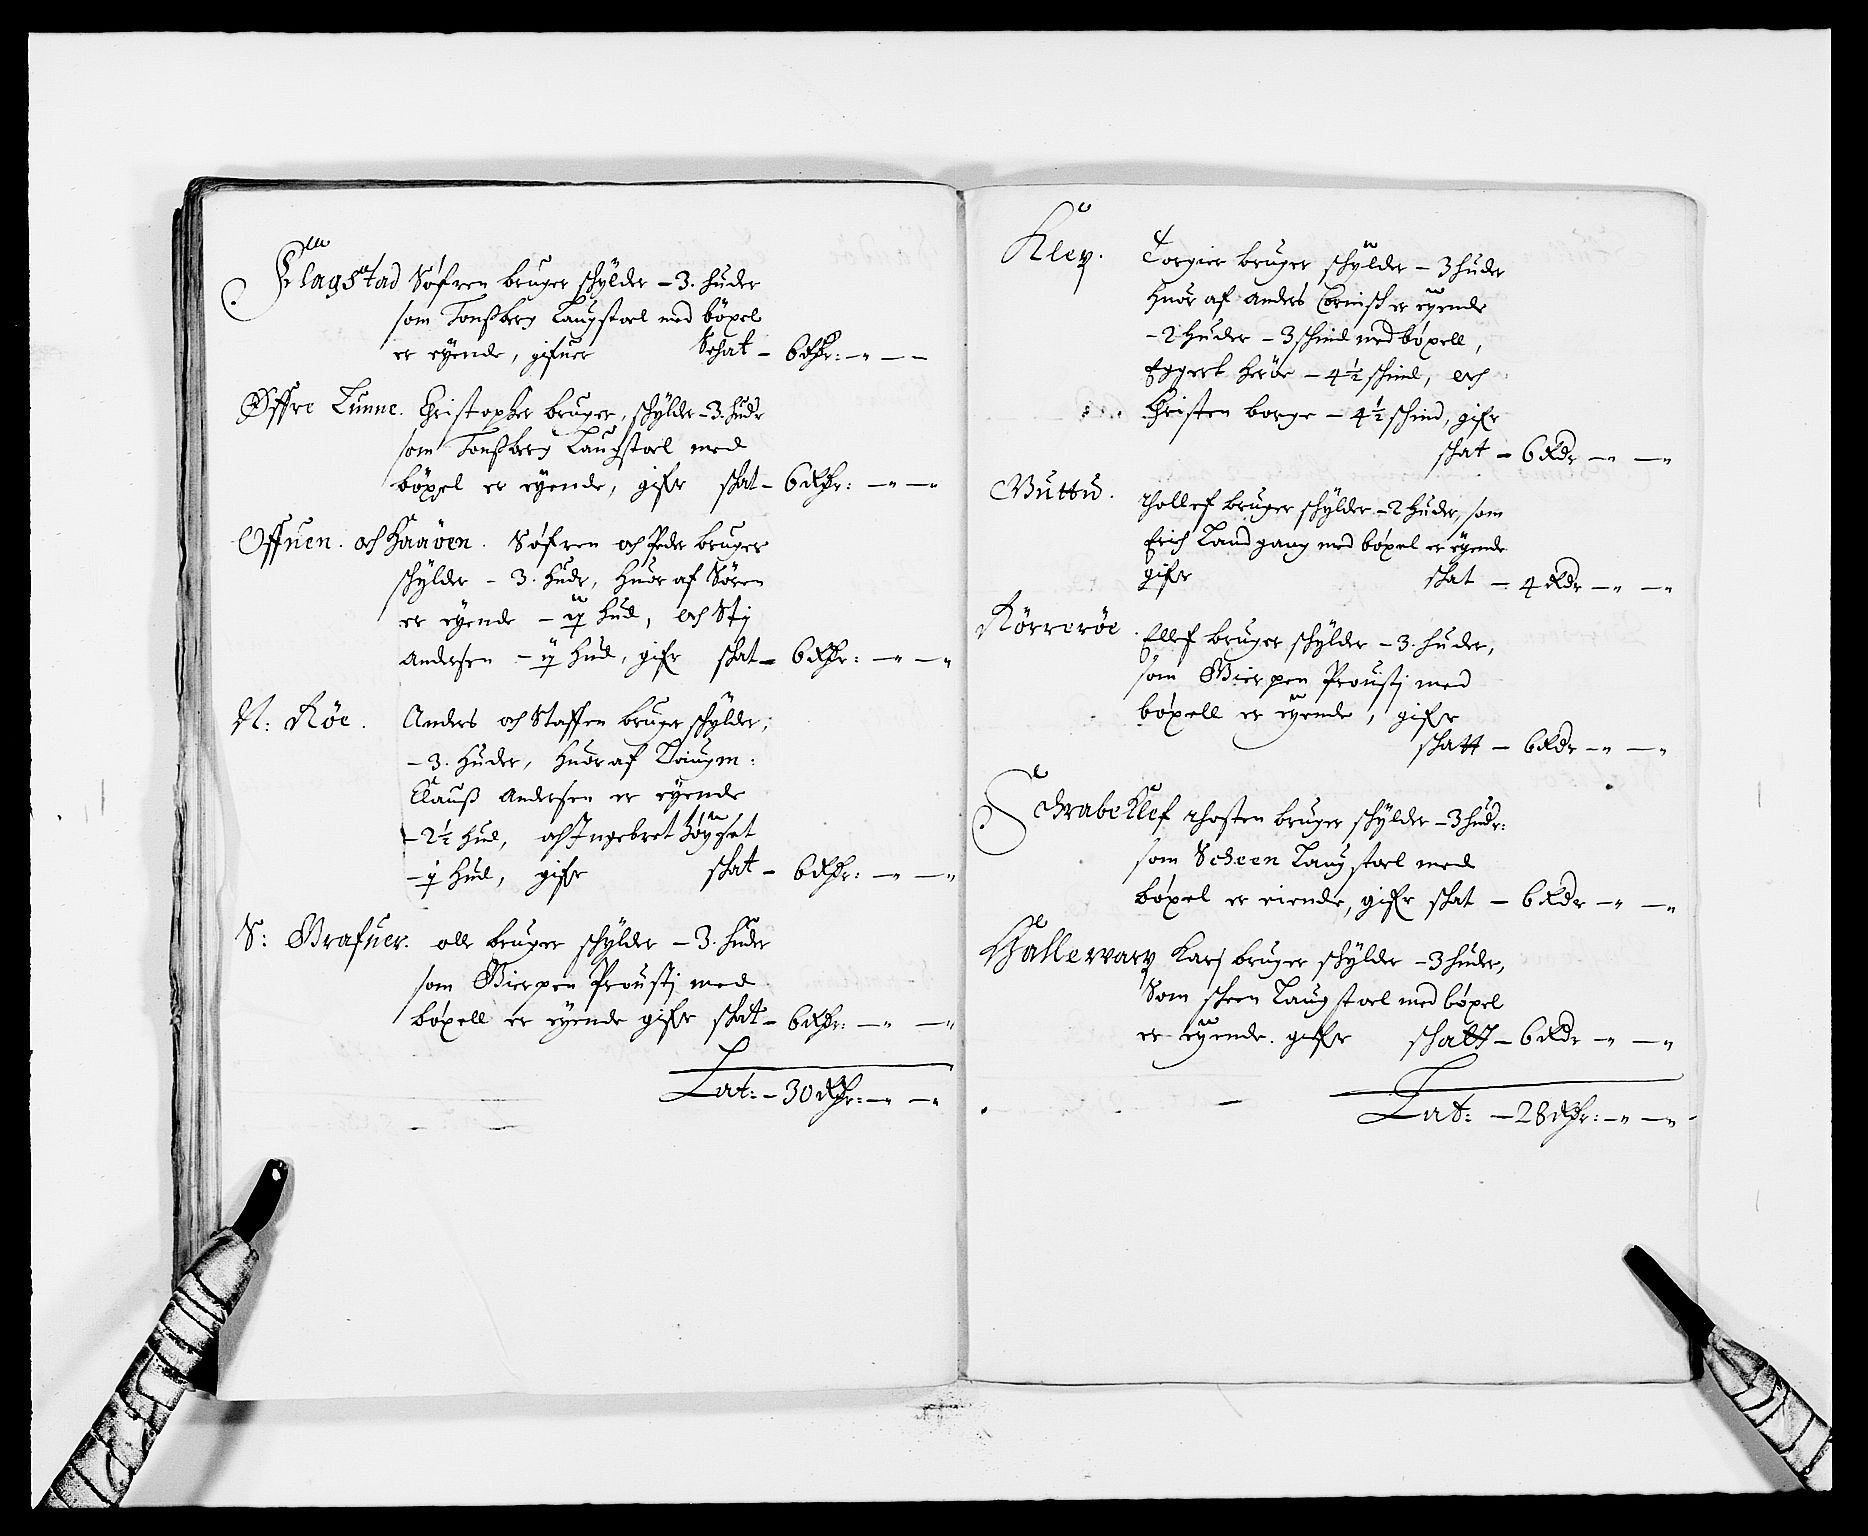 Flagstad Söfren bruger schylder – 3. huder
som Tonßberg Laugstoel med böxel
er eyende, gifuer Schat – 6 Rdr: – " – –
Öffre Lunne. Christopher bruger, schylder – 3. hudr
som Tonßberg Laugstoel med
böxel er eyende, gifr schat – 6 Rdr: – " – "
Offuen. och Haaven. Söfren och Peder bruger
schylder – 3. hudr, huor af Sören
er eyende – ÿ hud, och Stj
Andersen – ÿ hud, gifr schat – 6 Rdr: – " – "
N: Röe. Anders och Staffen bruger schylder;
– 3. huder, huor af Laugm:
Clauß Andersen er eyende
– 2½ hud, och Ingebret
– ½ hud, gifr schat – 6 Rdr: – " – "
S: Grafuer. olle bruger schylder – 3. huder
som Gierpen Proustj med
böxell er eyende gifr schat – 6 Rdr: – " – "
Lat: – 30 Rdr: – " – "
Kley. Torgier bruger schylder – 3 huder
huor af Anders er eyende
– 2 huder – 3 schind med böxell,
Eggert Heröe – 4½ schind, och
Christen borge – 4½ schind, gifr
schat – 6 Rdr – " – "
Guttu. Thollef bruger schylder – 2 huder, som
Erich Landgang med böxel er eyende
gifr schat – 4 Rdr – " – "
Körreröe. Ellef bruger schylder – 3. huder,
som Gierpen Proustj med
böxell er eyende, gifr
schatt – 6 Rdr – " – "
Grabeklef Thosten bruger schylder – 3 hudr:
som Scheen Laugstoel med
böxel er eiende, gifr schat – 6 Rdr – " – "
Hallevary Karj bruger schylder – 3 huder,
Som scheen Laugstoel med böxel
er eyende. gifr schatt – 6 Rdr – " – "
Lat: – 28 Rdr: – " – "